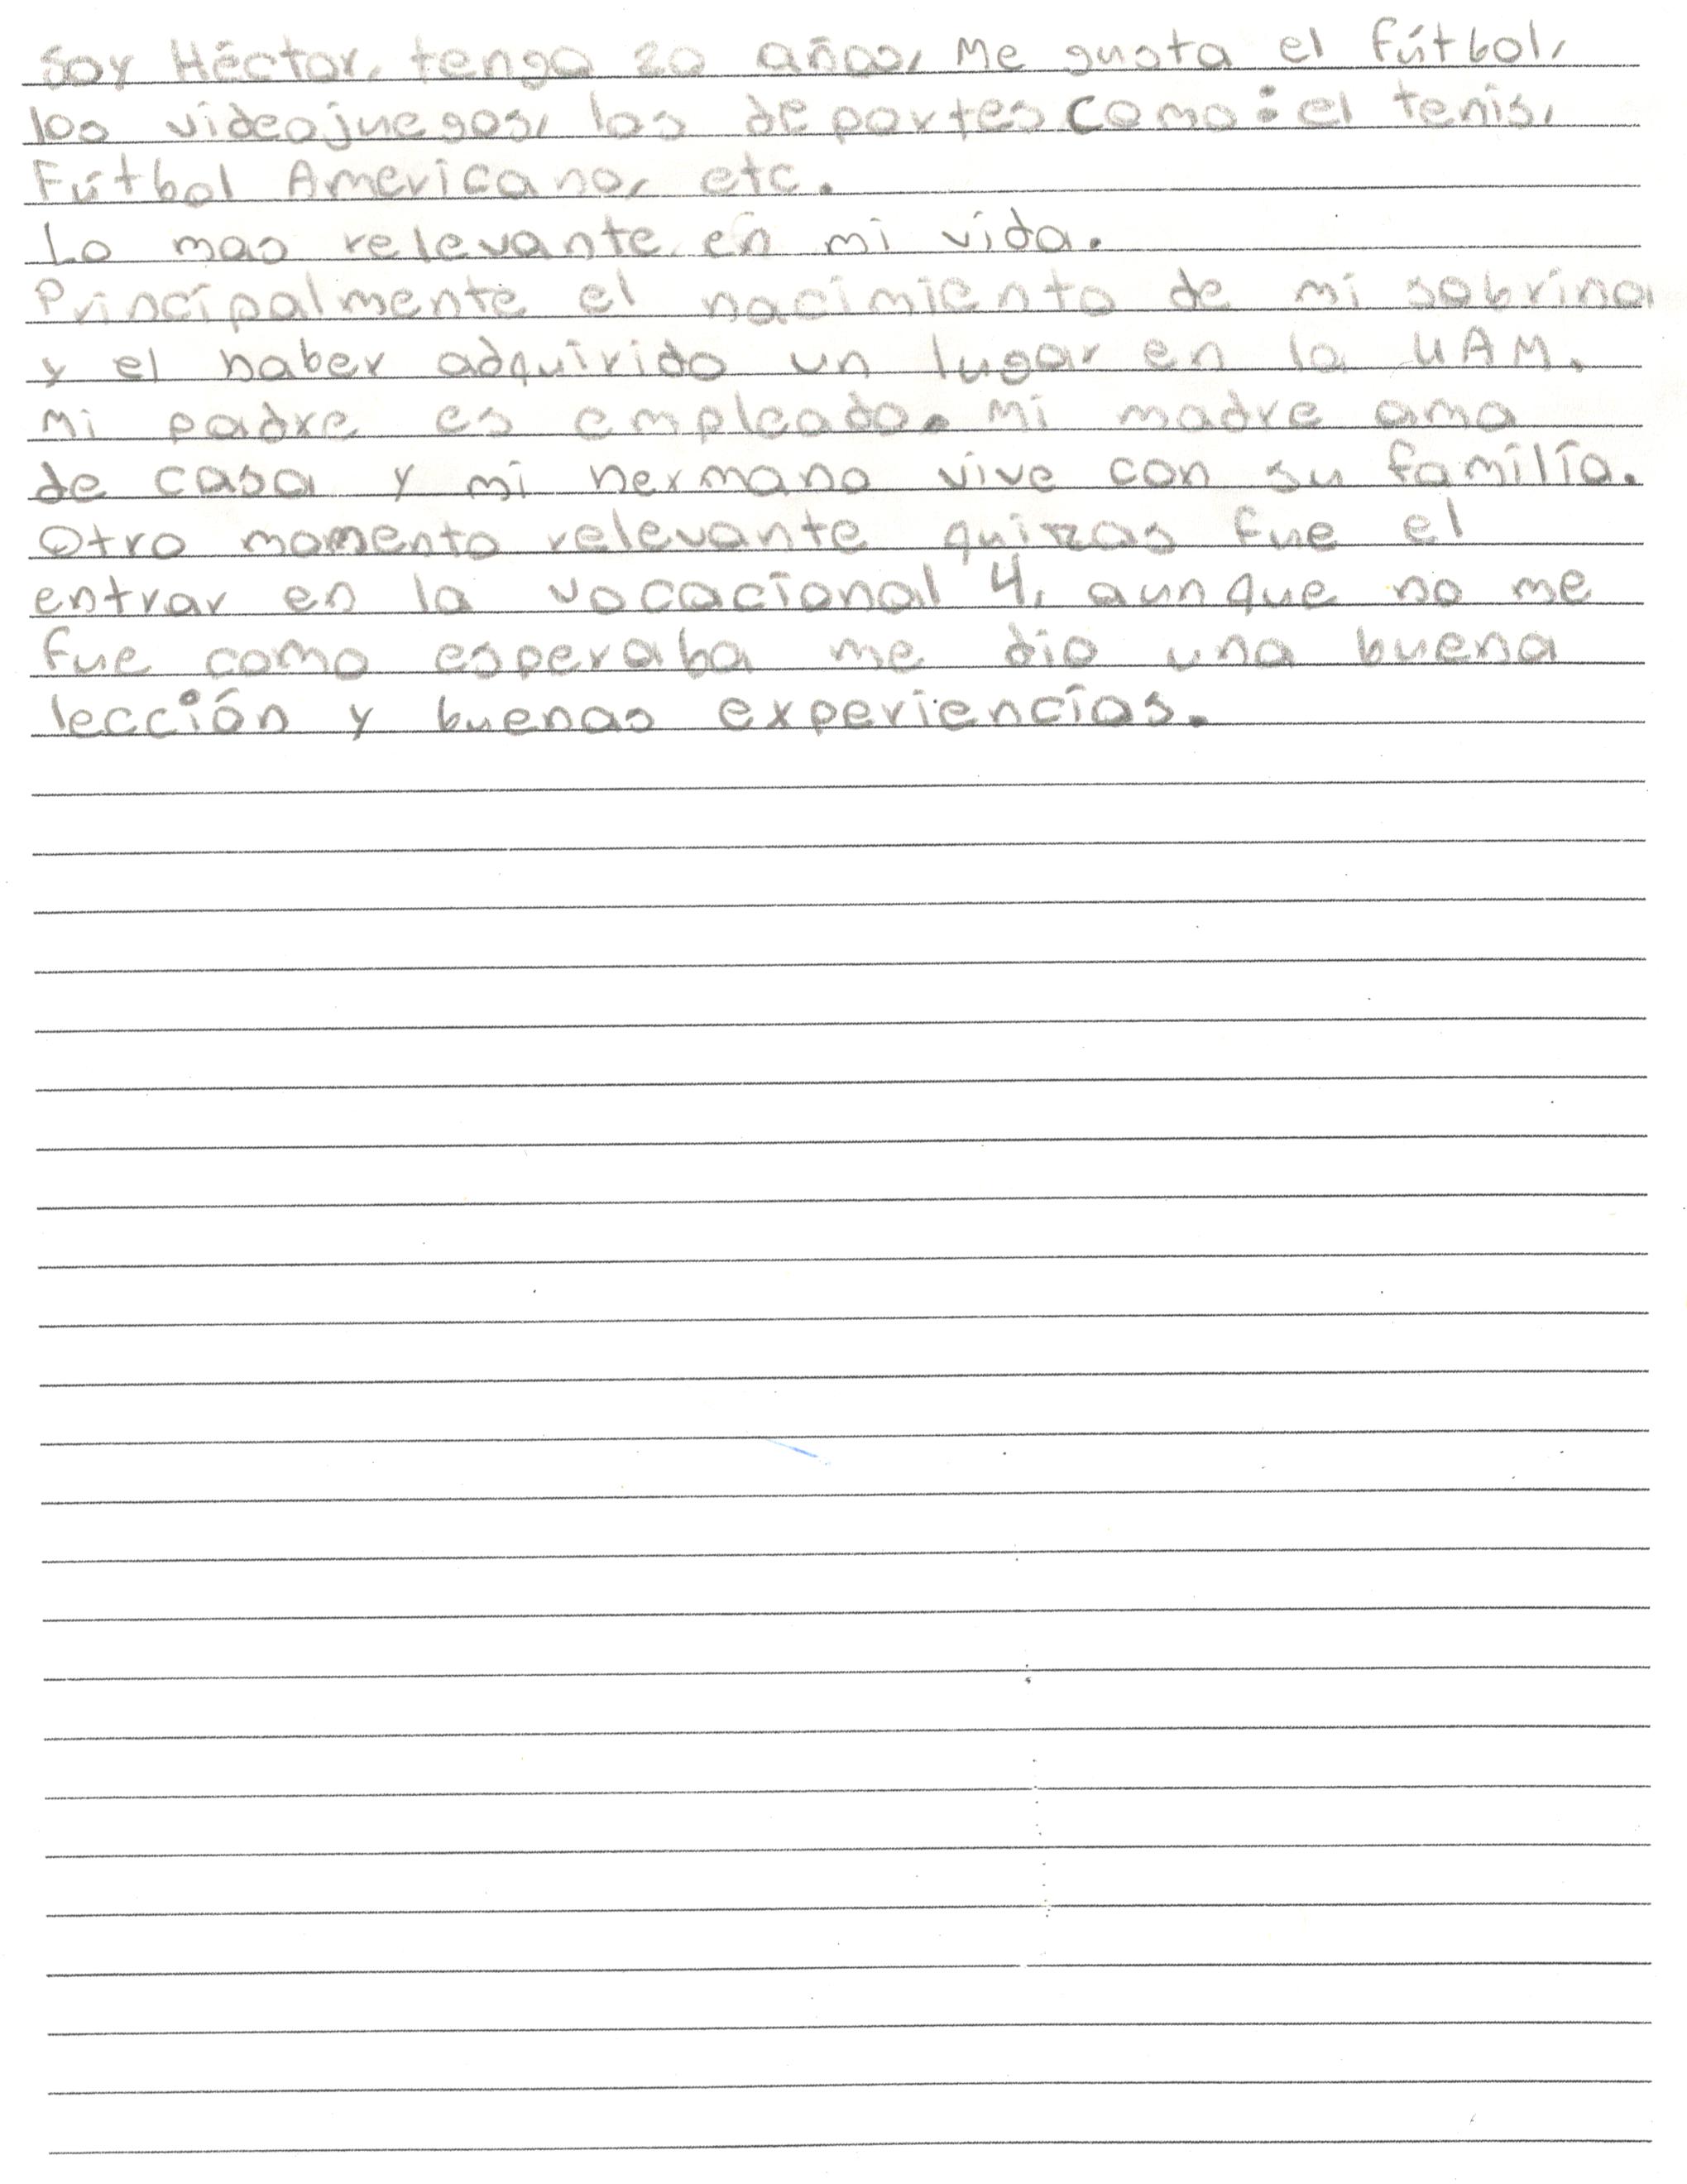 Soy Héctor, tengo 20 años, Me gusta el fútbol,
los videojuegos, los deportes como: el tenis,
Fútbol Americano, etc.
Lo mas relevante en mi vida.
Principalmente el nacimiento de mi sobrina
y el haber adquirido un lugar en la UAM.
Mi padre es empleado. Mi madre ama
de casa y mi hermano vive con su familia.
Otro momento relevante quizas fue el
entrar en la vocacional 4, aunque no me
fue como esperaba me dio una buena
lección y buenas experiencias.